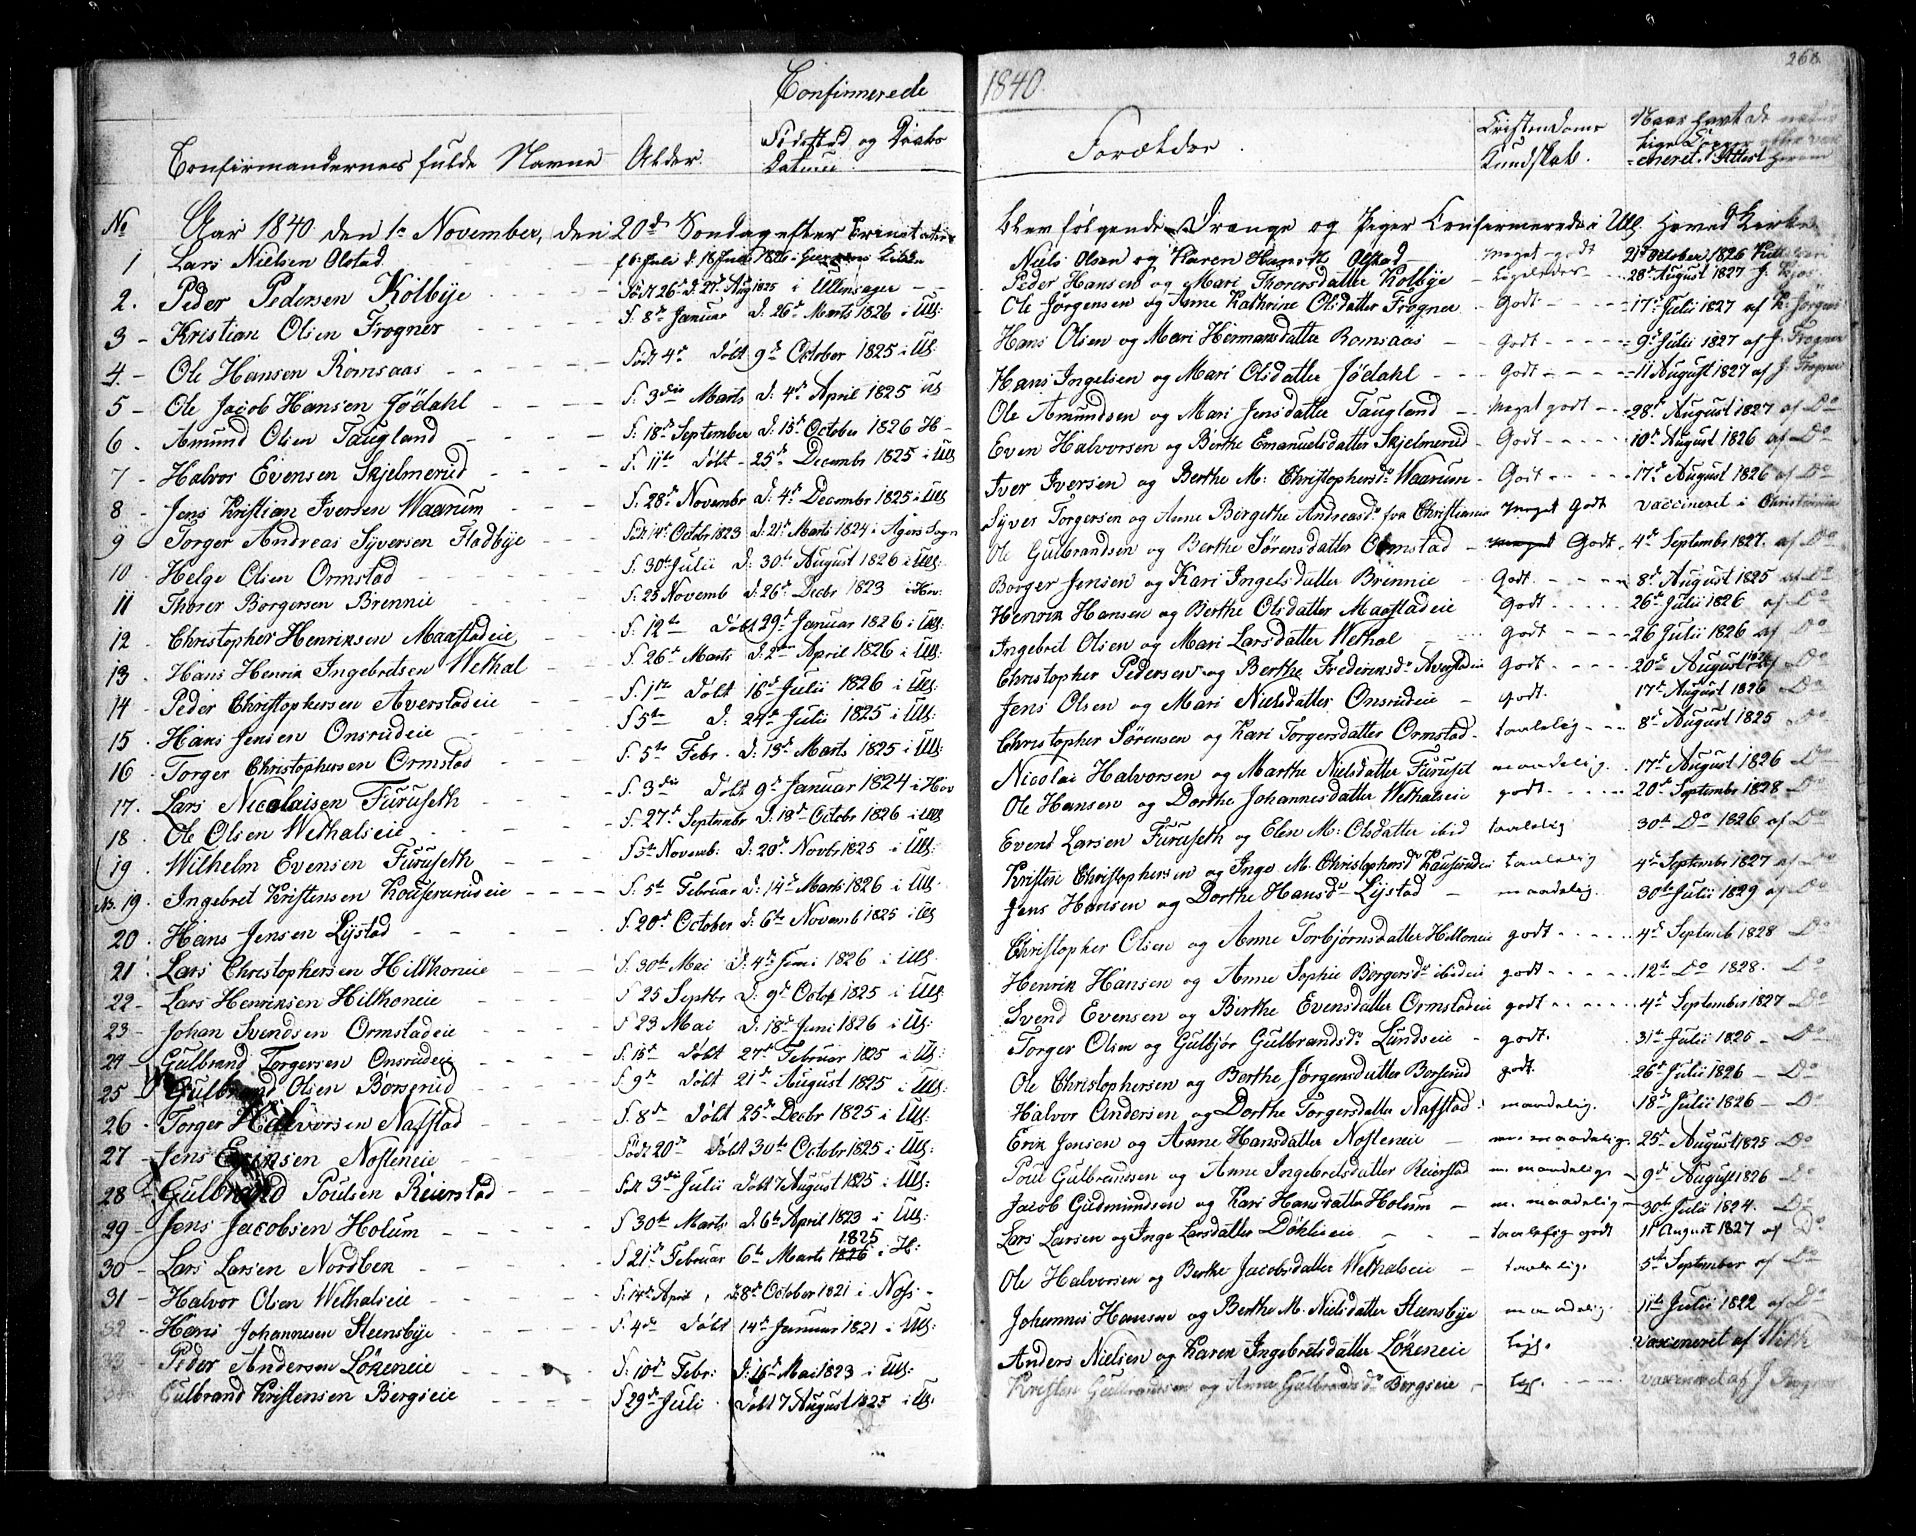 268
Confirmerede 1840.
Confirmandernes fulde Navne Alder. Födested og Daabs Datum Forældre. Cristendoms Kundskab. Naar havt de
No Aar 1840 den 1e November, den 20de Sondag efter Trinitatis blev følgende Drenge og Piger Confirmerede i Ull. Hoved Kirke
1 Lars Nielsen Olstad f 6 Juli d. 18 Juli 1826 i Niels Olsen og Karen Hansd. Olstad meget godt 21de October 1826
2. Peder Pedersen Kolbÿe Födt 26de d. 27. Aug 1825 i Ullensager Peder Hansen og Mari Thoresdatter Kolbÿe Ligeledes 28de August 1827 J. Kjos
3 - Kristian Olsen Frogner f. 8de Januar D. 26de Marts 1826 i Ull: Ole Jørgensen og Anne Kathrine Olsdatter Frogner Godt 17de Julii 1827 af
4. - Ole Hansen Romsaas Födt 4de Döbt 9de October 1825 i Ull Hans Olsen og Mari Hermansdatter Romsaas Godt 9de Julii 1827 af J. Frogner
5 - Ole Jacob Hansen Jödahl f. 3die Marts D. 4de April 1825 Ull Hans Ingelsen og Mari Olsdatter Jödahl Godt 11 August 1827 af J. Frogner
6 - Amund Olsen Taugland f. 18de September D. 15de October 1826 H Ole Amundsen og Mari Jensdatter Taugland meget godt 28de August 1827 af Do
7 - Halvor Evensen Skjelmerud f. 11te Döbt 25de Decembr 1825 i Ull Even Halvorsen og Berthe Emanuelsdatter Skjelmerud Godt 10de August 1826 af Do
8 - Jens Kristian Iversen Waarum f. 28de Novembr D. 4de Decembr 1825 i Ull Iver Iversen og Berthe M: Christophersdr Waarum Godt 17de August 1826 af Do
9 - Torger Andreas Syversen Fladbÿe Födt 14de Octobr 1823 D. 21de Marts 1824 i Agers Sogn Syver Torgersen og Anne Birgethe Andreasdr fra Christiania meget Godt vaccineret i Christiania
10 - Helge Olsen Ormstad f. 30te Julii D. 30te August 1826 i Ull: Ole Gulbrandsen og Berthe Sørensdatter Ormstad meget Godt 4de Septembr 1827. af Do
11 - Thorer Borgersen Brennie f. 25 Novemb D. 26de Decbr 1823 i Hov: Borger Jensen og Kari Ingelsdatter Brennie Godt 8de August 1825 af Do
12 - Christopher Henriksen Maastadeie f. 12te Döbt 29de Januar 1826 i Ull: Henrik Hansen og Berthe Olsdatter Maastadeie Godt 26de Julii 1826 af Do
13. Hans Henrik Ingebretsen Wethal f. 26de Marts D. 2den April 1826 i Ull: Ingebret Olsen og Mari Larsdatter Wethal Godt 26 Julii 1826 af Do
14 - Peder Christophersen Averstadeie f. 1te Döbt 16de Julii 1826 i Ull: Christopher Pedersen og Berthe Frederiksdr Averstadeie godt 20de August 1826 af Do
15 . Hans Jensen Onsrudeie f 5te D. 24de Julii 1825 i Ull: Jens Olsen og Mari Nielsdatter Onsrudeie godt. 17de August 1826 Do
16 . Torger Christophersen Ormstad f. 5te Febr. D. 13de Marts 1825 i Ull: Christopher Sørensen og Kari Torgersdatter Ormstad taalelig 8de August 1825 Do
17. Lars Nicolaisen Furuseth f. 3die Döbt 9de Januar 1824 i Hov Nicolai Halvorsen og Marthe Nielsdatter Furuset maadelig. 17de August 1826 Do
18 . Ole Olsen Wethalseie f. 27de Septembr D. 18de Octobr 1826 i Ull Ole Hansen og Dorthe Johannesdatter Wethalseie godt. 20de Septembr 1828 Do
19 . Wilhelm Evensen Furuseth f 5te Novemb: D. 20de Novbr 1825 i Ull: Evend Larsen Furuseth og Elen M: Olsdatter ibid taalelig 30te Do 1826 af Do
No. 19. Ingebret Kristensen Kauserudeie f. 5te Februar D. 14de Marts 1826 i Ull: Kristen Christophersen og Inge M. Christophersdr Kauserudeie taalelig 4de Septembr 1827 af Do
20 . Hans Jensen Lÿstad f. 20de October D. 6te Novemb 1825 i Ull Jens Hansen og Dorthe Hansdr Lÿstad maadelig. 30te Julii 1829 af Do
21 . Lars Christophersen Hilthoneie f. 30te Mai D. 4de Juni 1826 i Ull. Christopher Olsen og Anne Torbjørnsdatter Hiltoneie godt 4de Septemb 1828 Do
22 - Lars Henriksen Hilthoneie f 25 Septbr D. 9de Octob 1825 i Ull Henrik Hansen og Anne Sophie Borgersdr ibideie godt 12te Do 1828. Do
23 - Johan Svendsen Ormstadeie f 23 Mai D. 18de Juni 1826 i Ull: Svend Evensen og Berthe Evensdatter Ormstadeie godt 4de September 1827 Do
24 - Gulbrand Torgersen Onsrudeie f. 15de Döbt 27de Februar 1825 i Ull. Torger Olsen og Gulbjør Gulbrandsdr Lundseie godt. 31te Julii 1825 Do
25 Gulbrand Olsen Borserud f. 9de Döbt 21de August 1825 i Ull: Ole Christophersen og Berthe Jørgensdatter Borserud godt. 26de Julii 1826 Do
26 . Torger Halvorsen Nafstad f. 8de Döbt 25de Decbr 1825 i Ull: Halvor Andersen og Dorthe Torgersdatter Nafstad maadelig. 18de Julii 1826 Do
27 - Jens Eriksen Nosteneie Födt 20de Döbt 30te October 1825 i Ull: Erik Jensen og Anne Hansdatter Nosteneie m. maadelig. 25de August 1825 Do
28 Gulbrand Poulsen Reierstad Födt 3die Julii Döbt 7 August 1825 i Ull. Poul Gulbrandsen og Anne Ingebretsdatter Reierstad m. maadelig. 9de August 1826 Do
29 - Jens Jacobsen Holum f. 30te Marts D. 6te April 1823 i Ull: Jacob Gudmundsen og Kari Hansdatter Holum m. maadelig 30te Julii 1824. Do
30 - Lars Larsen Nordsben f 21de Februar 6te Marts 1826 1825 i H: Lars Larsen og Inge Larsdatter Döhlieie taalelig godt 11 August 1827 af Do
31 - Halvor Olsen Wethalseie f. 14de April, D. 8de October 1821 i Ole Halvorsen og Berthe Jacobsdatter Wethalseie taalelig. 5te September af Do
32 - Hans Johannesen Steensbÿe f. 4de Döbt 14de Januar 1821 i Ull: Johannes Hansen og Berthe M. Nielsdatter Steensbÿe maadelig. 11te Julii 1822 af Do
33 - Peder Andersen Lökeneie f. 10de Febr: D. 16de Mai 1823 i Ull: Anders Nielsen og Karen Ingebretsdatter Lökeneie Vaxeneret af
34 Gulbrand Kristensen Bergseie f 29de Juli Döbt 7 August 1825 i Ull. Kristen Gulbrandsen og Anne Gulbrandsdr Bergseie vaxeneret af J. Frogner